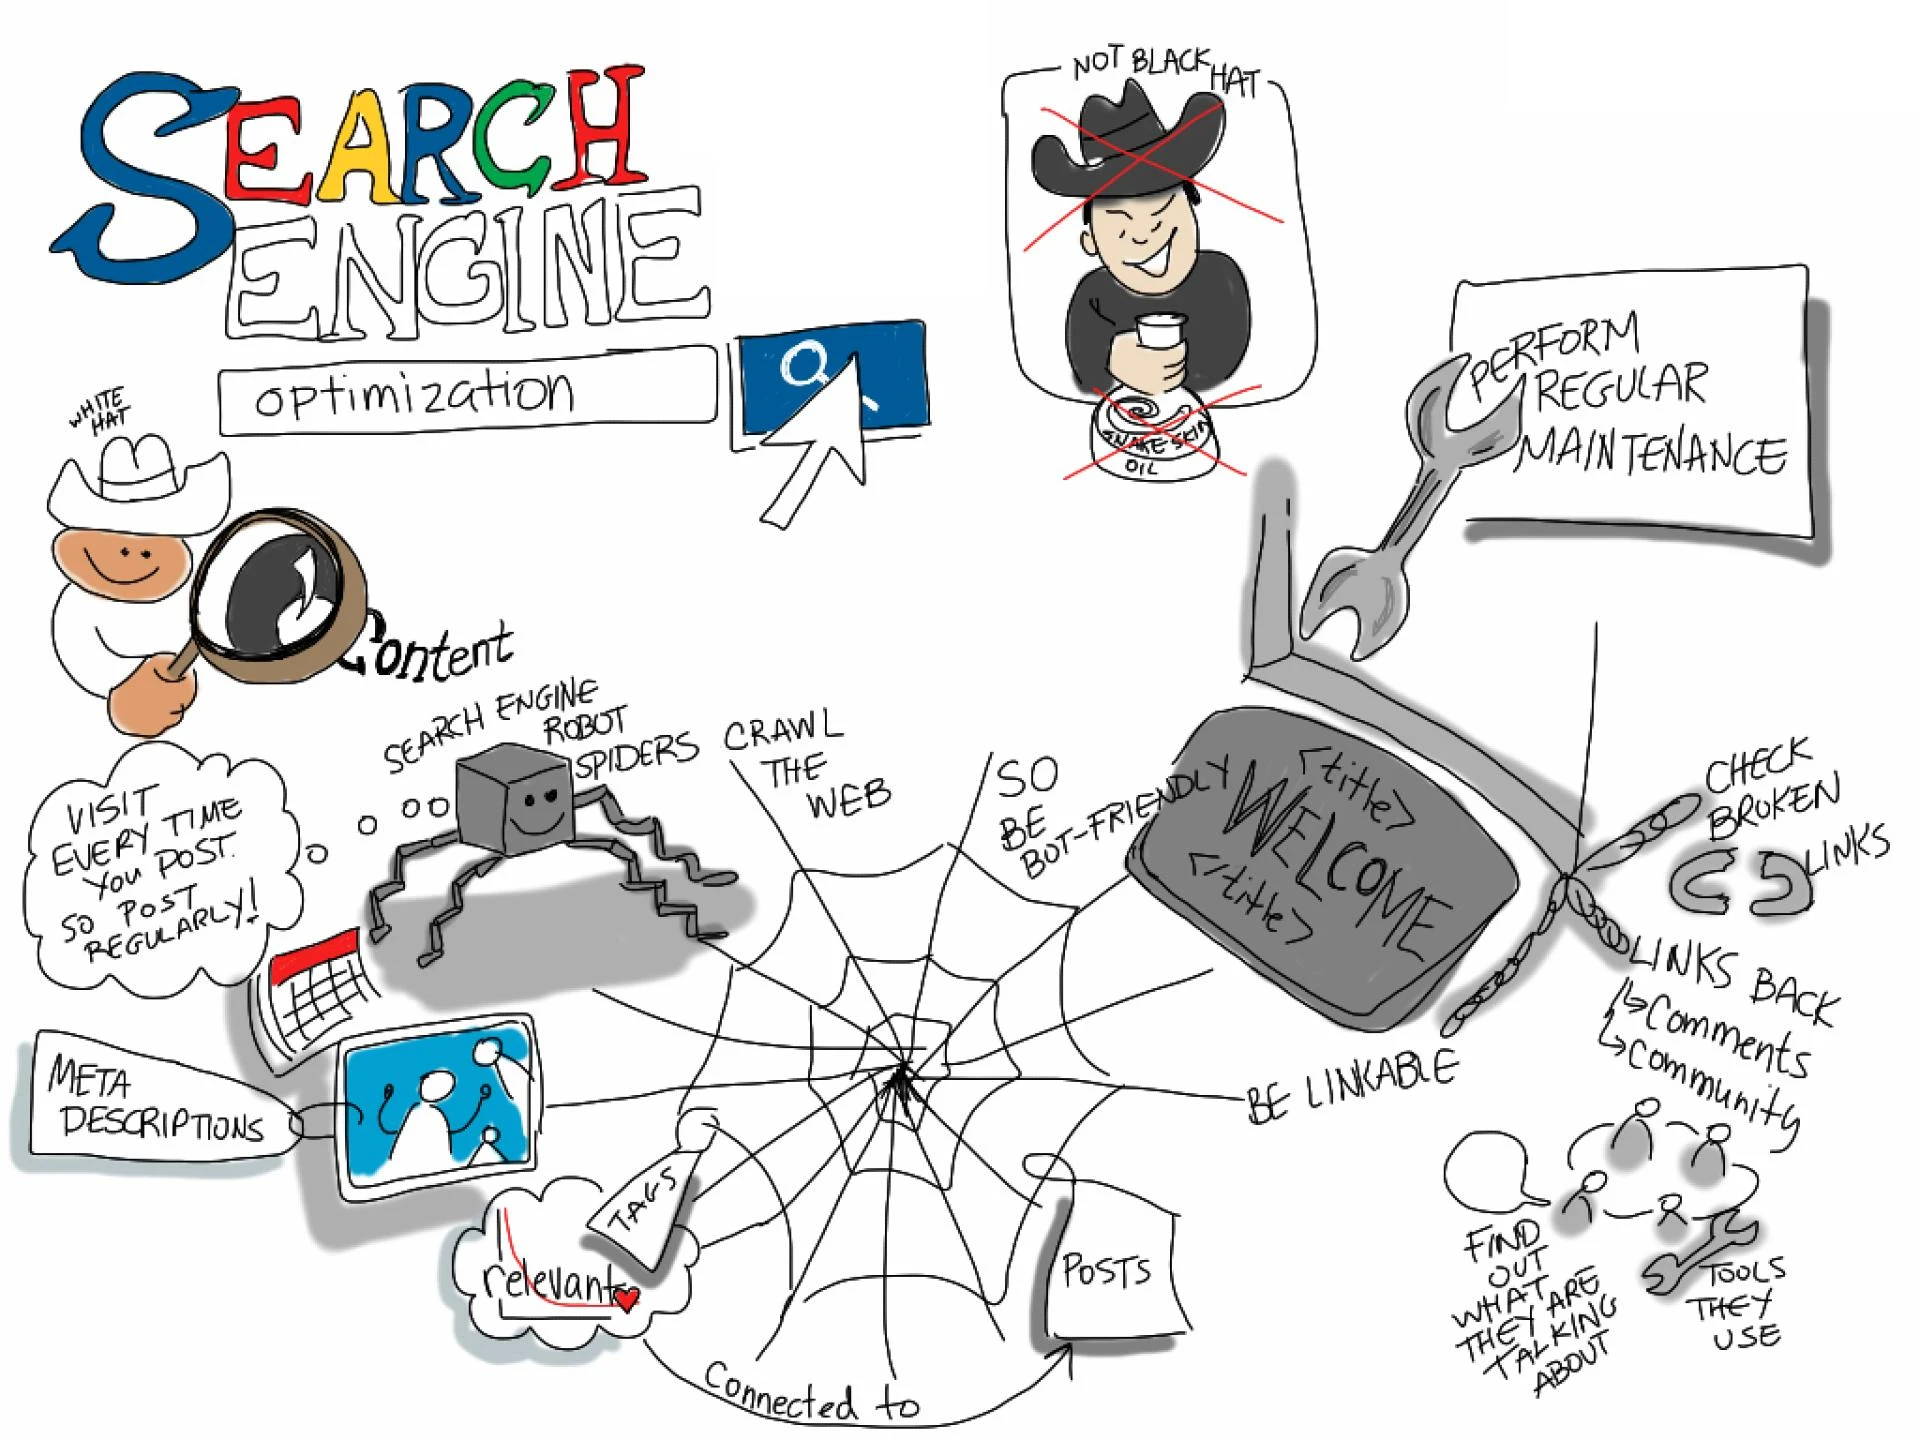 SEARCH
ENGINE
optimization
NOT BLACK HAT
SNAKE-SKIN
OIL
PERFORM
REGULAR
MAINTENANCE
WHITE
HAT
Content
SEARCH ENGINE
ROBOT
SPIDERS
VISIT
EVERY TIME
YOU POST.
SO POST
REGULARLY!
CRAWL
THE
WEB
SO
BE
BOT-FRIENDLY
<title>
WELCOME
</title>
CHECK
BROKEN
LINKS
LINKS BACK
Comments
Community
BE LINKABLE
META
DESCRIPTIONS
TAGS
relevant
POSTS
Connected to
FIND
OUT
WHAT
THEY ARE
TALKING
ABOUT
TOOLS
THEY
USE